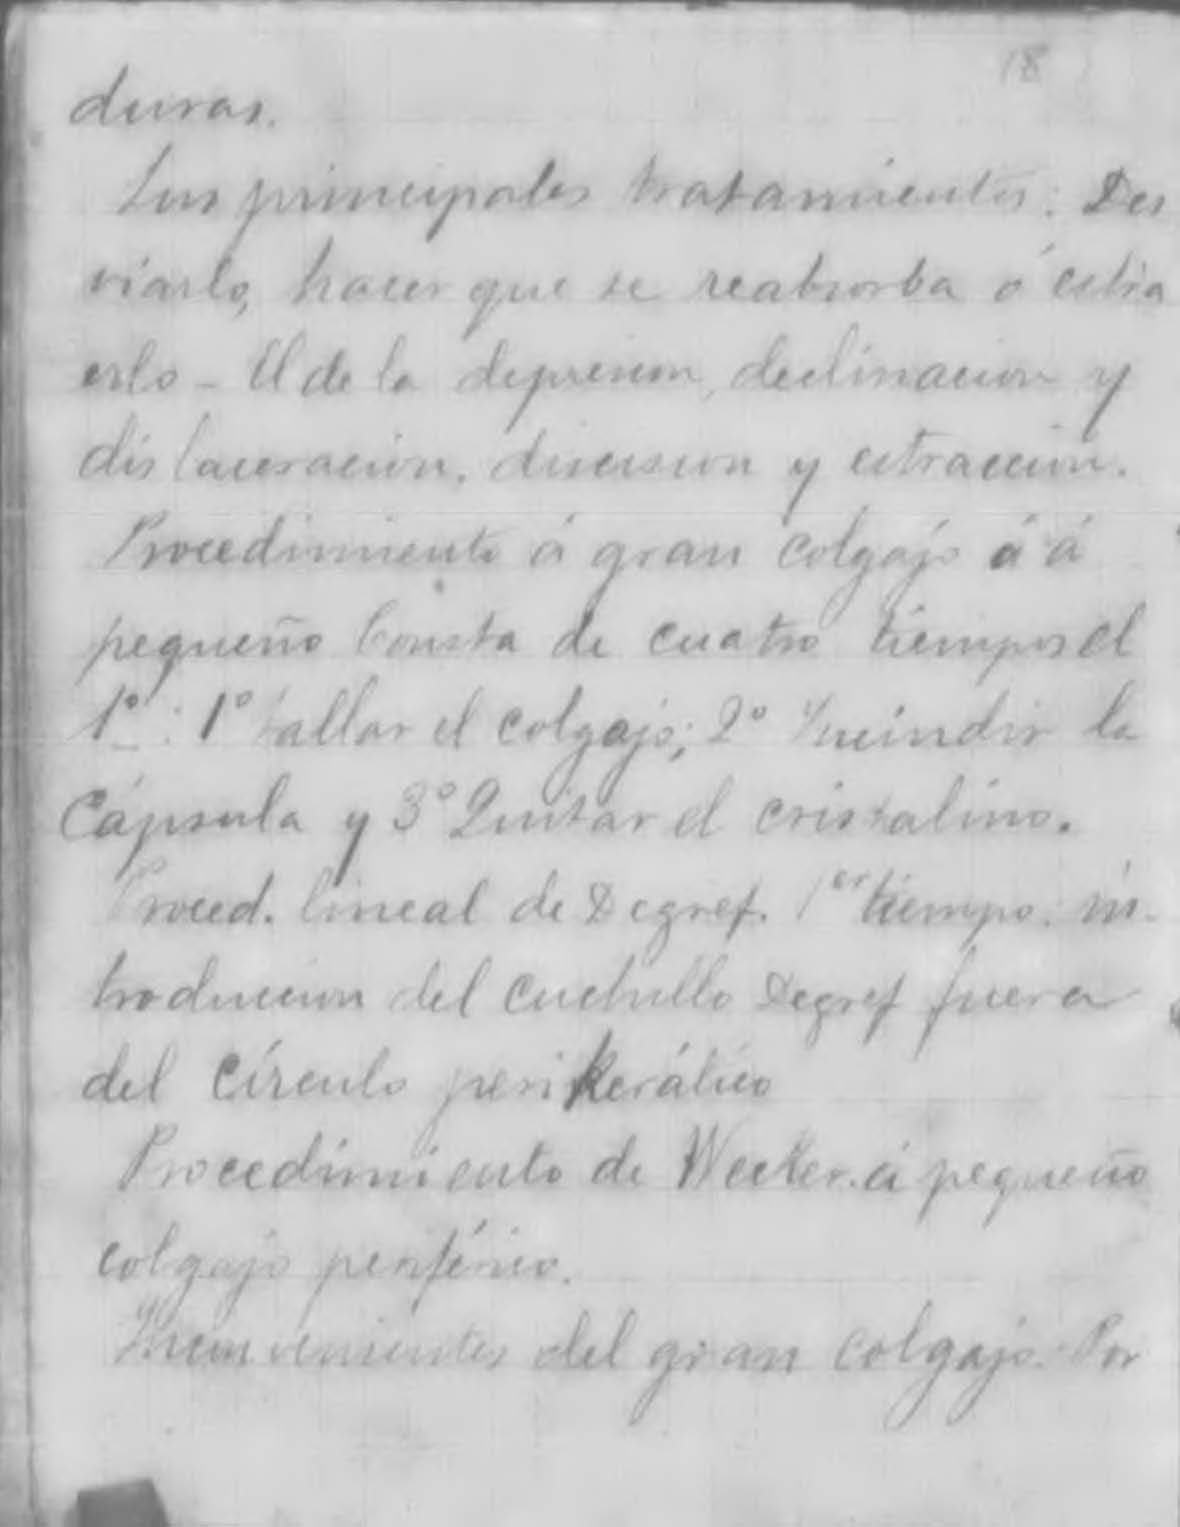 18
duras.
Los principales tratamientos: Des
viarlo, hacer que se reabsorba ó estra
erlo - El de la depresion, declinacion y
dislaceracion, discision y estraccion.
Procedimiento á gran colgajo á á
pequeño Consta de cuatro tiempos el
1º : 1º tallar el colgajo; 2º Incindir la
Cápsula y 3º Quitar el cristalino.
Proced. lineal de Degref. 1er tiempo: in-
troduccion del cuchillo Degref fuera
del círculo perikerático
Procedimiento de Wecker á pequeño
colgajo periférico.
Inconvenientes del gran colgajo. Por